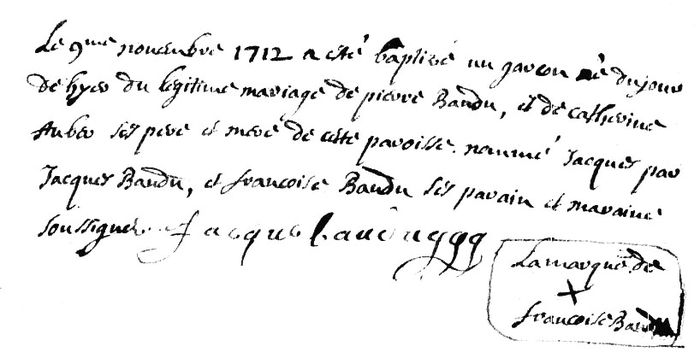 Le 9me novembre 1712 a eté baptizé un garcon né du jour
de hyer du legitime mariage de pierre Baudu, et de catherine
Auber ses pere et mere de cette paroisse. nommé Jacques par
Jacques Baudu, et francoise Baudu ses parain et maraine
soussignez. Jacque baudu
La marque de
X
francoise Baudu